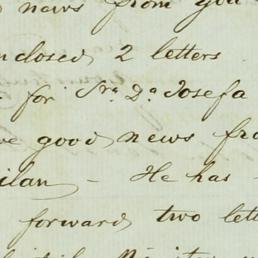 news from you
nclosed 2 letters
for Sra Da Josefa
ve good news fro
ilan - He has
forward two lett